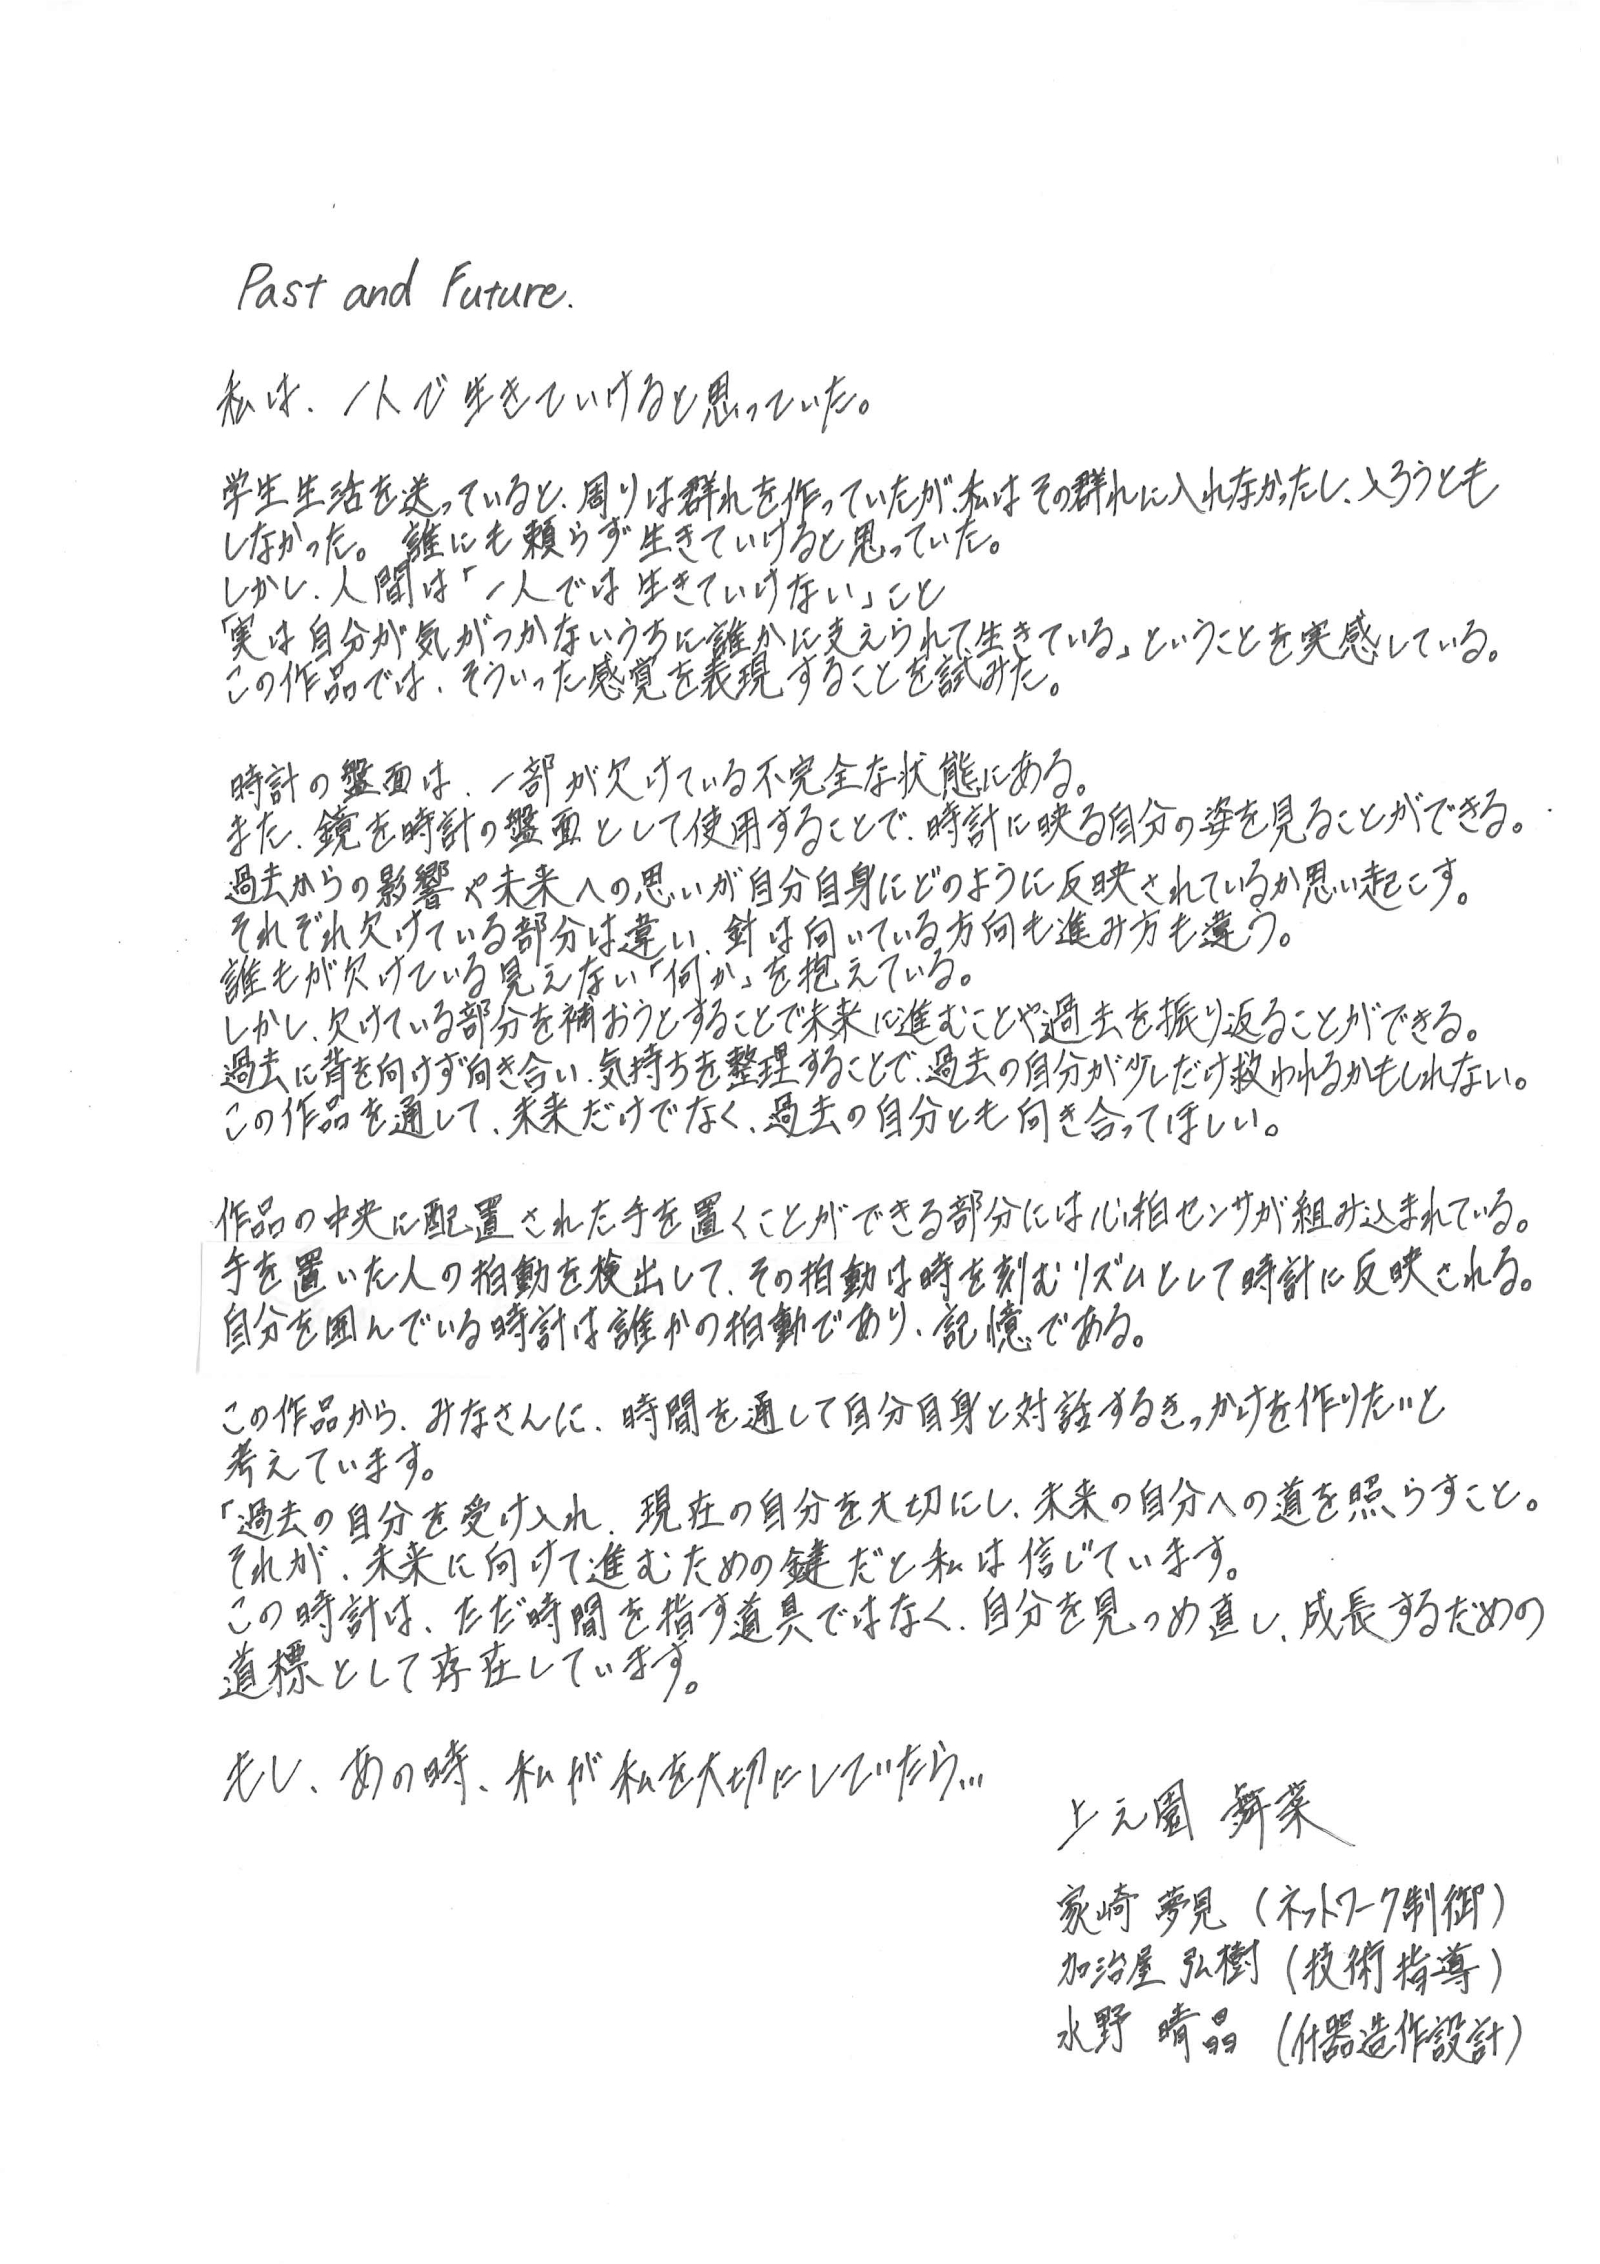 Past and Future.
私は、一人で生きていけると思っていた。
学生生活を送っていると、周りは群れを作っていたが、私はその群れに入れなかったし、入ろうとも
しなかった。誰にも頼らず生きていけると思っていた。
しかし、人間は「一人では生きていけない」こと
「実は自分が気がつかないうちに誰かに支えられて生きている」ということを実感している。
この作品では、そういった感覚を表現することを試みた。
時計の盤面は、一部が欠けている不完全な状態にある。
また、鏡を時計の盤面として使用することで、時計に映る自分の姿を見ることができる。
過去からの影響や未来への思いが自分自身にどのように反映されているか思い起こす。
それぞれ欠けている部分は違い、針は向いている方向も進み方も違う。
誰もが欠けている見えない「何か」を抱えている。
しかし、欠けている部分を補おうとすることで未来に進むことや過去を振り返ることができる。
過去に背を向けず向き合い、気持ちを整理することで、過去の自分が少しだけ救われるかもしれない。
この作品を通して、未来だけでなく、過去の自分とも向き合ってほしい。
作品の中央に配置された手を置くことができる部分には心拍センサが組み込まれている。
手を置いた人の拍動を検出して、その拍動は時を刻むリズムとして時計に反映される。
自分を囲んでいる時計は誰かの拍動であり、記憶である。
この作品から、みなさんに、時間を通して自分自身と対話するきっかけを作りたいと
考えています。
「過去の自分を受け入れ、現在の自分を大切にし、未来の自分への道を照らすこと。
それが、未来に向けて進むための鍵だと私は信じています。
この時計は、ただ時間を指す道具ではなく、自分を見つめ直し、成長するだめの
道標として存在しています。
もし、あの時、私が私を大切にしていたら...
上之園 舞菜
家崎 夢見（ネットワーク制御）
加治屋 弘樹（技術指導）
水野 晴晶（什器造作設計）